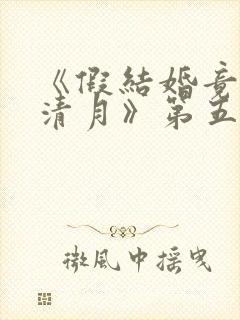 《假結婚竟
清月》第五
微風中搖曳